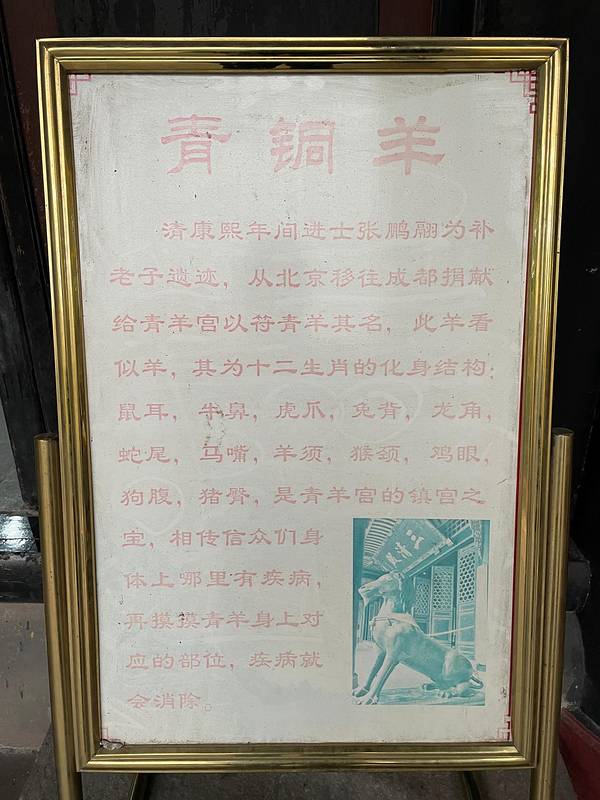 青铜羊
清康熙年间进士张鹏翮为补
老子遗迹，从北京移往成都捐献
给青羊宫以符青羊其名，此羊看
似羊，其为十二生肖的化身结构：
鼠耳，牛鼻，虎爪，兔背，龙角，
蛇尾，马嘴，羊须，猴颈，鸡眼，
狗腹，猪臀，是青羊宫的镇宫之
宝，相传信众们身
体上哪里有疾病，
再摸摸青羊身上对
应的部位，疾病就
会消除。